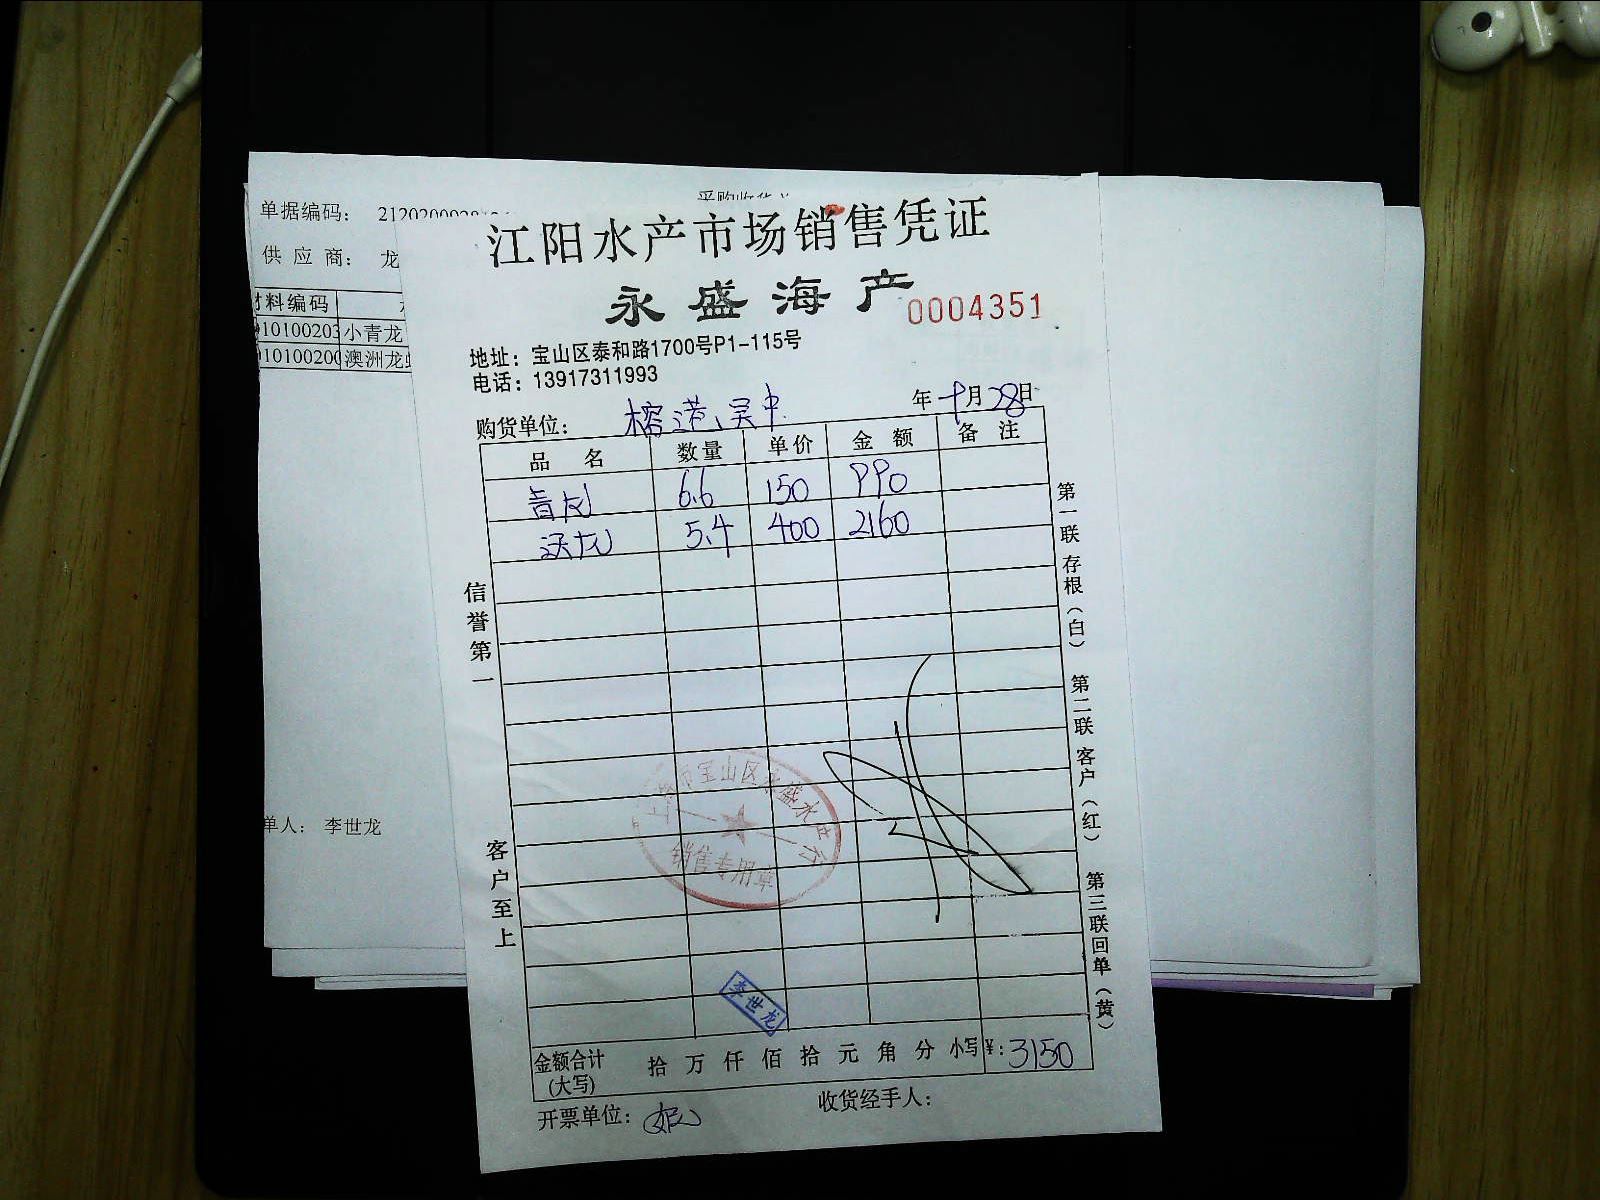 单据编码：
供 应 商： 龙
材料编码
10100203 小青龙
澳洲龙虾
单人： 李世龙
江阳水产市场销售凭证
永盛海产
0004351
地址：宝山区泰和路1700号P1-115号
电话：13917311993
购货单位： 榕港、吴中 年 十月 28日
品 名 数量 单价 金 额 备 注
青龙 6.6 150 990
沃龙 5.4 400 2160
信誉第一
客户至上
第一联 存根（白）
第二联 客户（红）
第三联回单（黄）
宝山区永盛水产行
销售专用章
李世龙
金额合计（大写） 拾 万 仟 佰 拾 元 角 分 小写 ¥：3150
开票单位： 收货经手人：